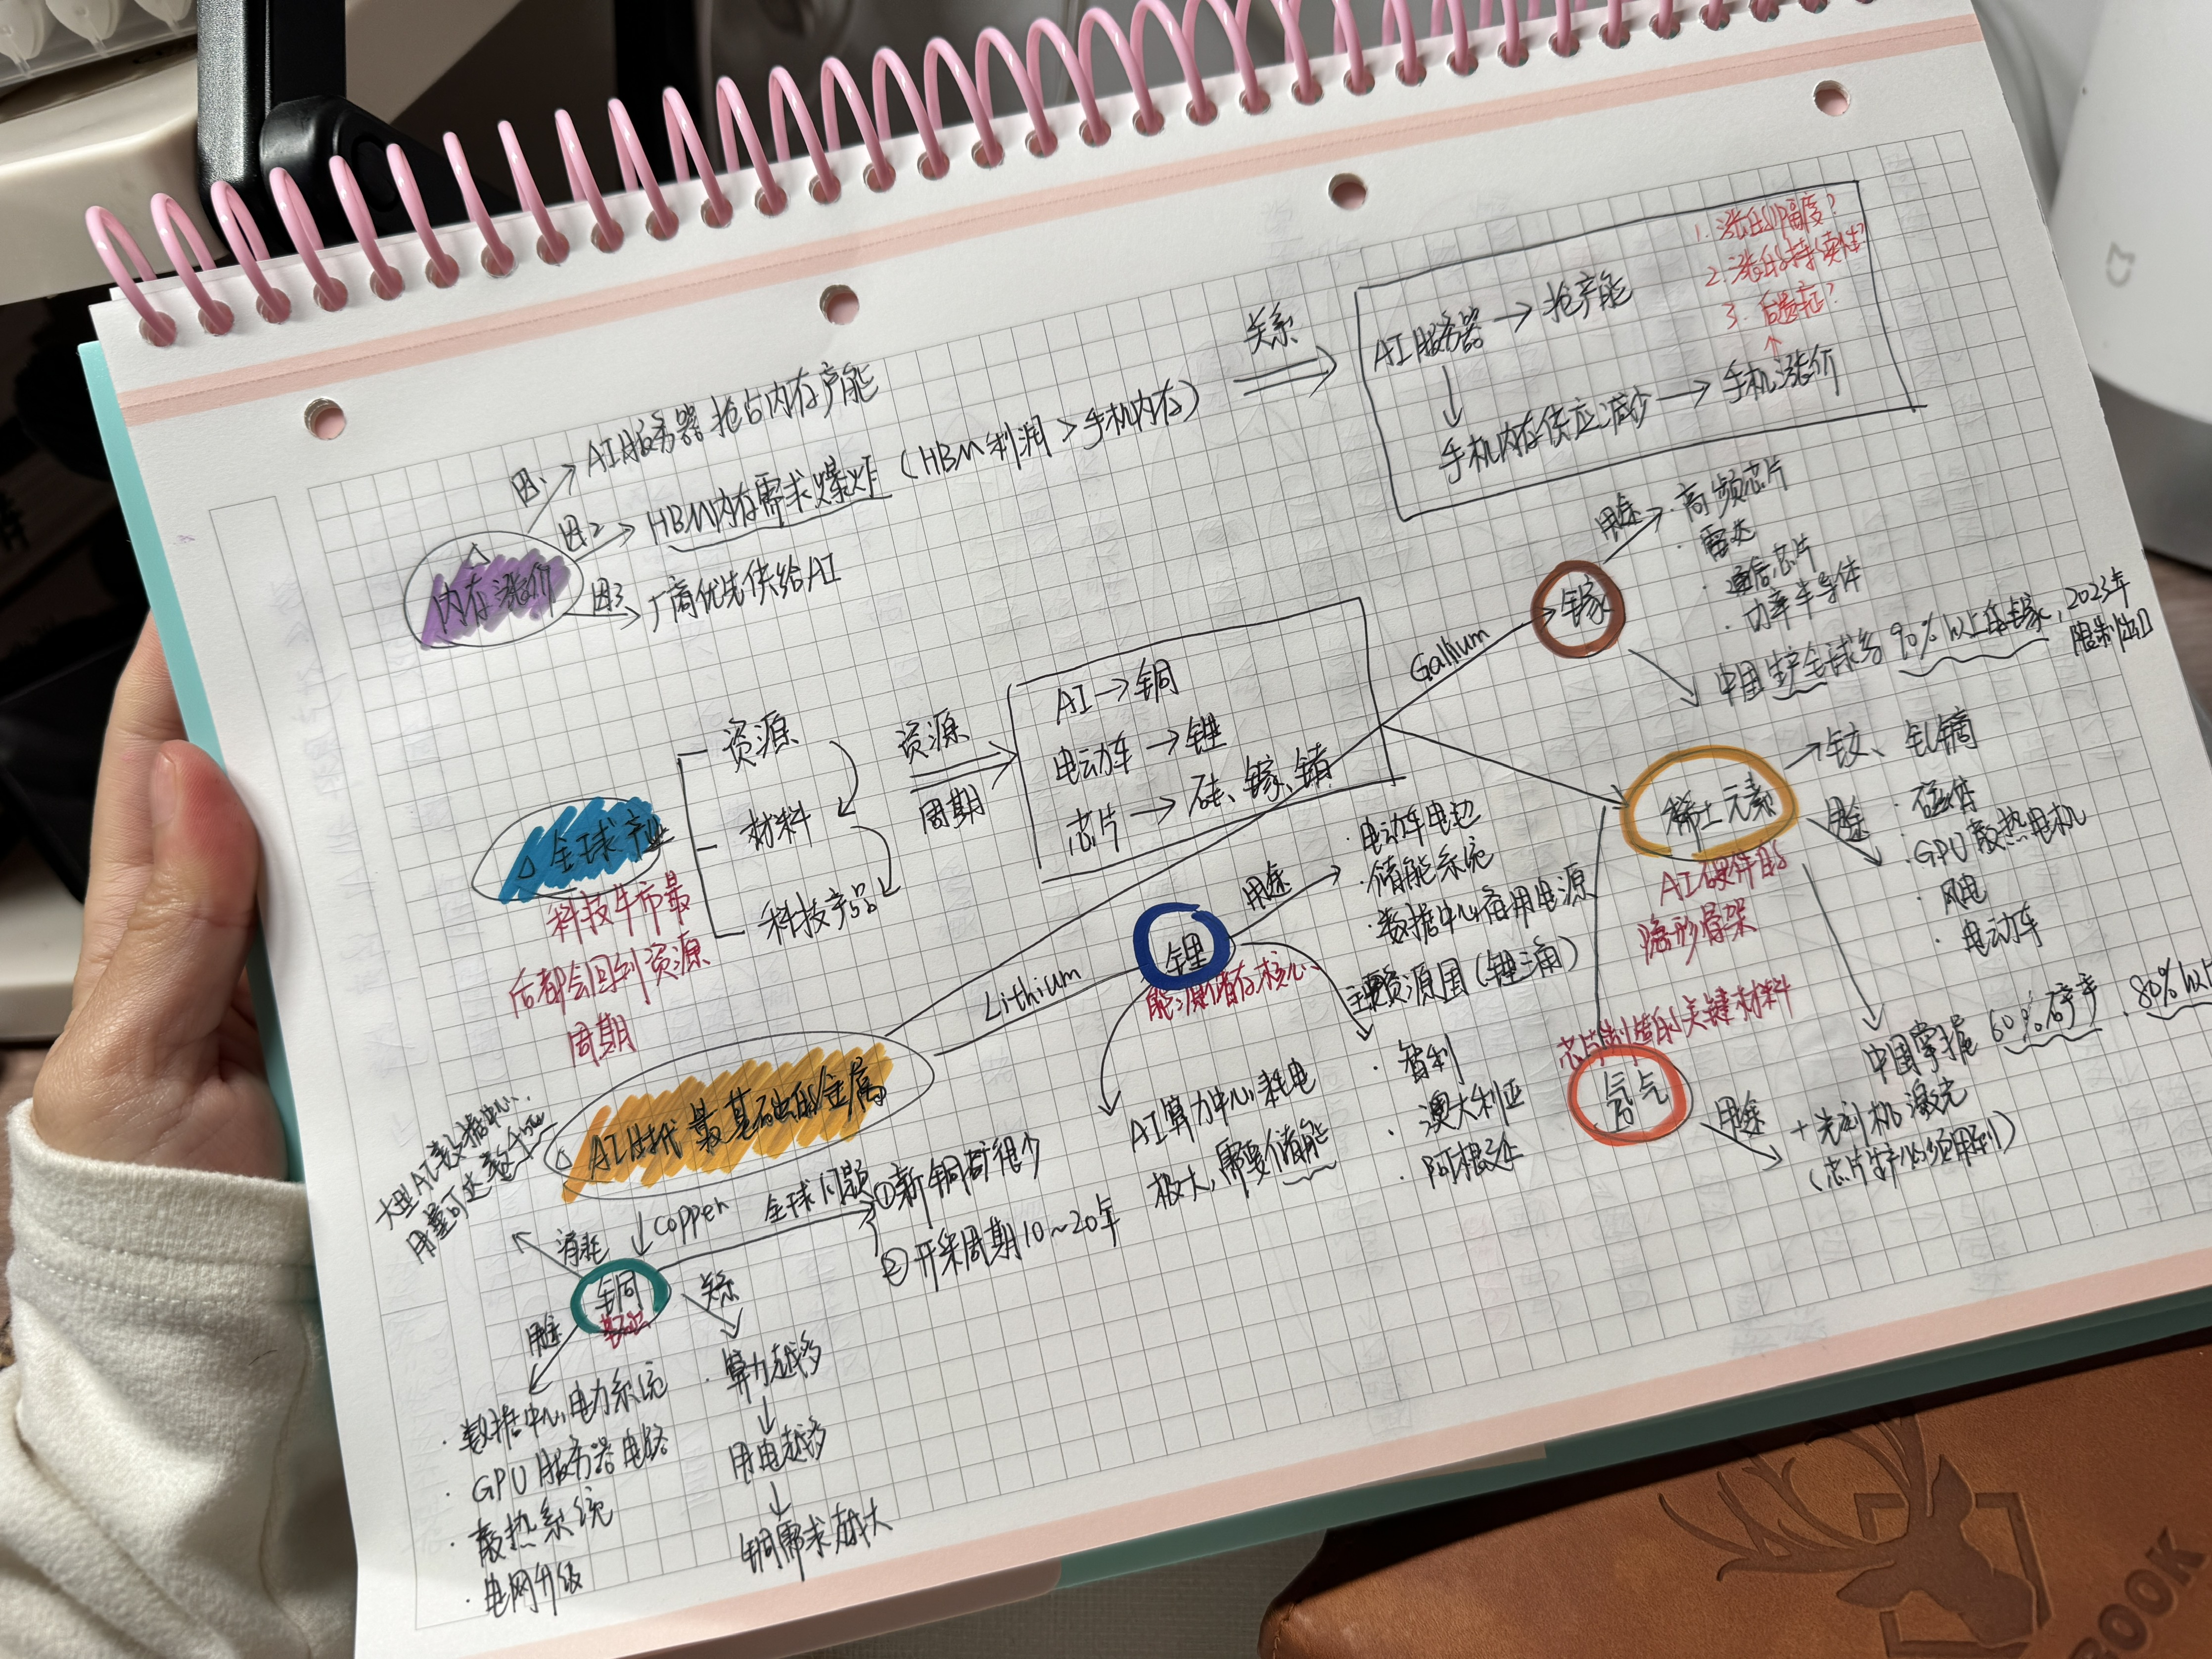 因1 → AI服务器抢占内存产能
内存涨价
因2 → HBM内存需求爆炸 (HBM利润 > 手机内存)
因3 → 厂商优先供给AI
关系
AI服务器 → 抢产能
手机内存供应减少 → 手机涨价
1. 涨的幅度?
2. 涨的持续性?
3. 后遗症?
全球产业
科技牛市最
后都会回到资源
周期
资源
材料
科技产品
资源
周期
AI → 铜
电动车 → 锂
芯片 → 硅、镓、锗
AI时代最基础的金属
Gallium
镓
用途
· 高频芯片
· 雷达
· 通信芯片
· 功率半导体
中国生产全球多90%以上的镓, 2023年
限制出口
稀土元素
AI硬件的
隐形骨架
→ 钕、钆镝
用途
· 磁体
· GPU散热电机
· 风电
· 电动车
中国掌握60%矿产, 80%以上
芯片制造的关键材料
氖气
用途
+ 光刻机激光
(芯片生产必须用到)
Lithium
锂
能源储存核心
用途
· 电动车电池
· 储能系统
· 数据中心备用电源
主要资源国 (锂三角)
· 智利
· 澳大利亚
· 阿根廷
AI算力中心耗电
极大, 需要储能
Copper
铜
基础
消耗
大型AI数据中心,
用量可达数
全球问题
①新铜矿很少
②开采周期10~20年
用途
· 数据中心电力系统
· GPU服务器电路
· 散热系统
· 电网升级
关系
· 算力越多
↓
用电越多
↓
铜需求越大
BOOK